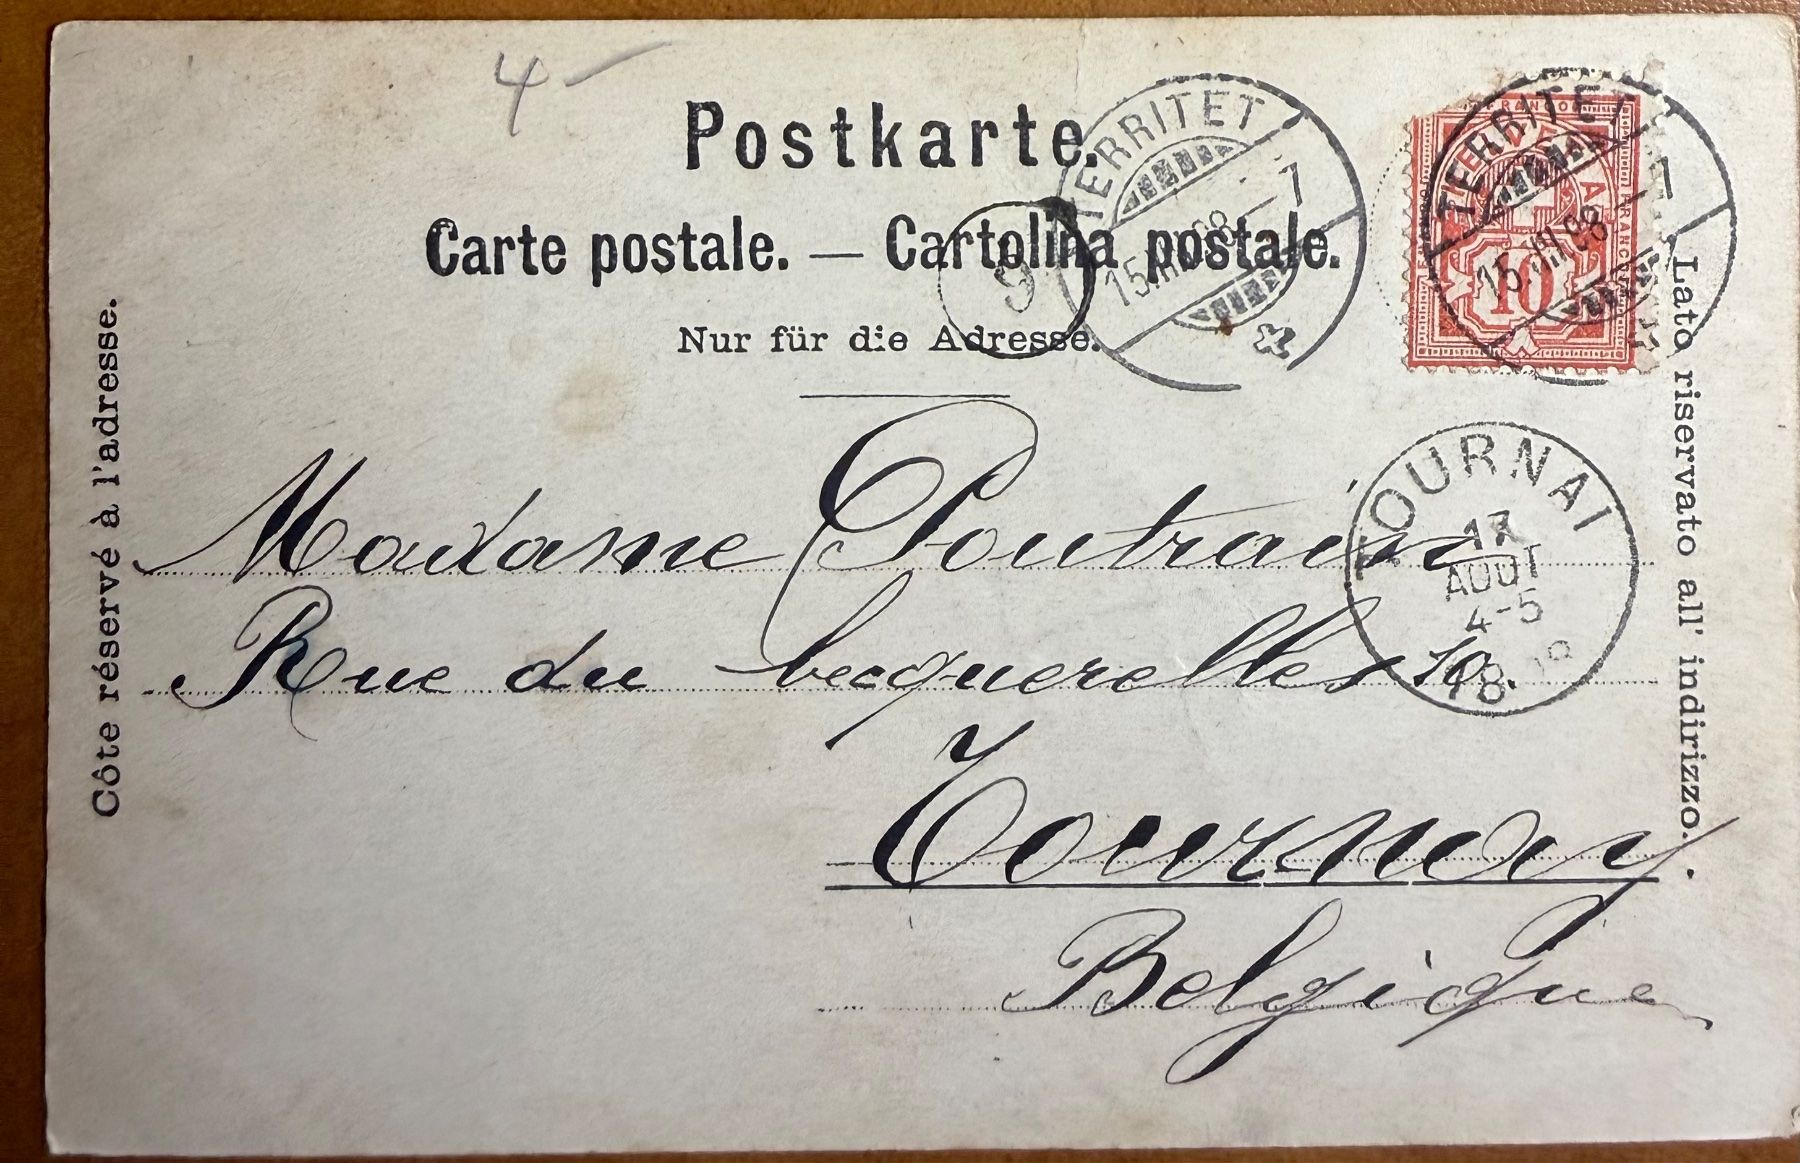 4 –
Postkarte.
Carte postale. — Cartolina postale.
Nur für die Adresse.
Côte réservé à l'adresse.
Lato riservato all' indirizzo.
TERRITET
15.VIII.98 - 7
9
TERRITET
15.VIII.98 - 7
FRANCO
10
TOURNAI
17
AOUT
4-5
Madame Poutrain
Rue du becquerelles 10.
Tournay.
Belgique